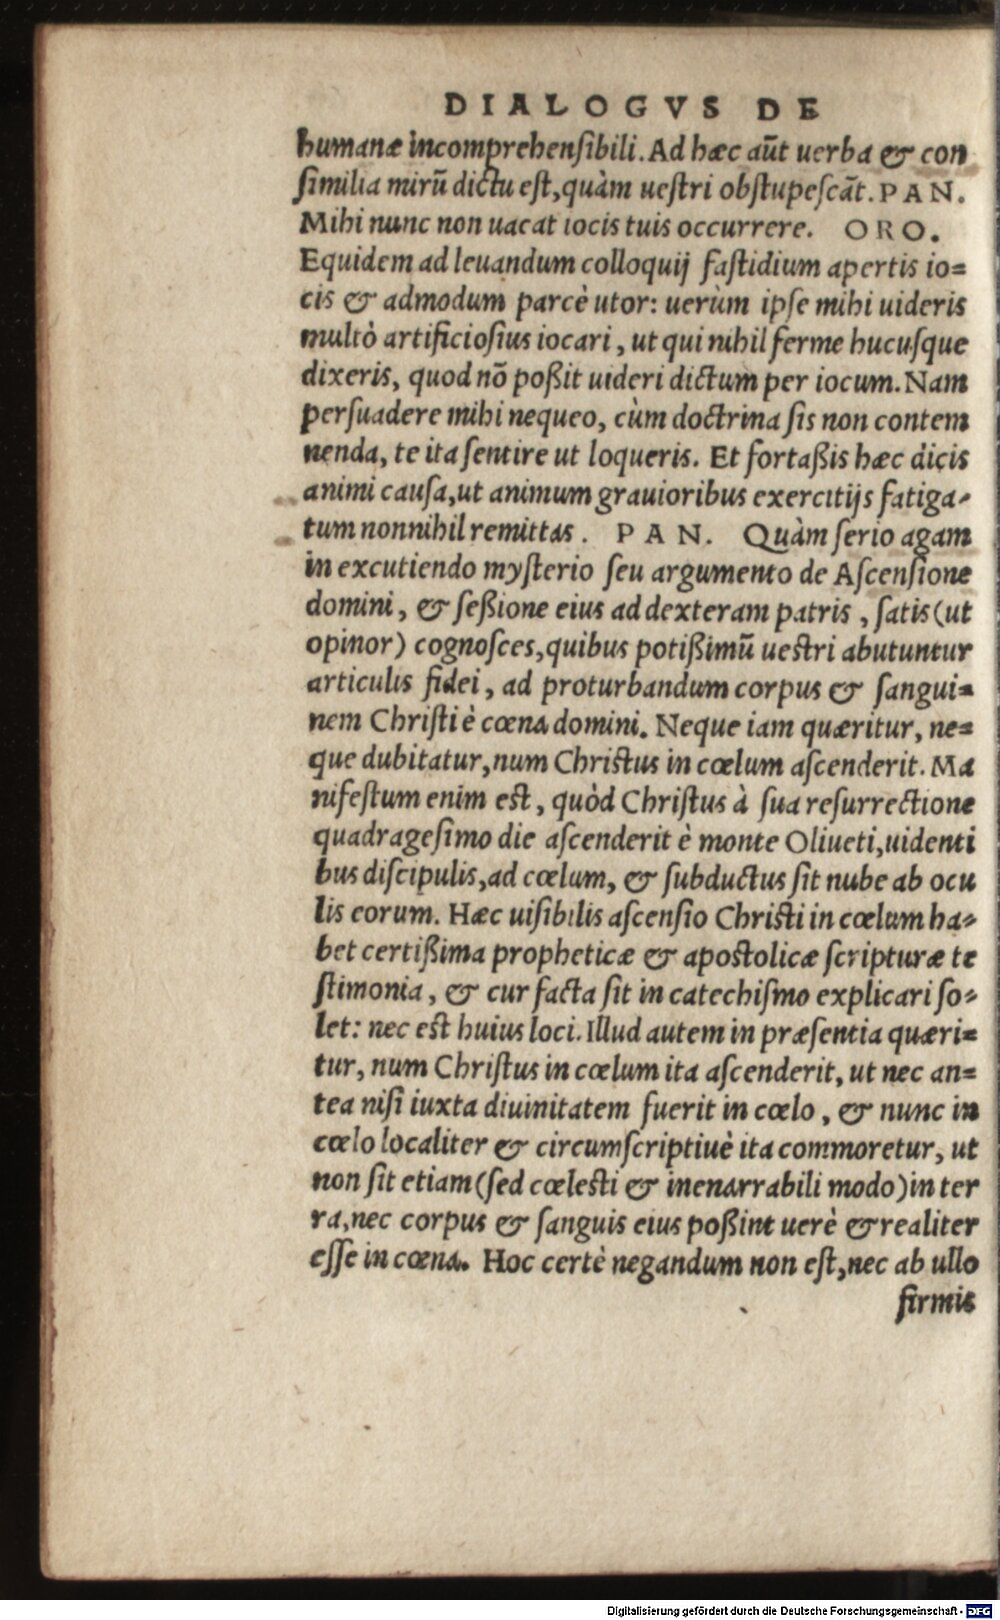 DIALOGVS DE
humanæ incomprehensibili. Ad hæc aūt uerba & con
ſimilia mirū dictu eſt, quàm ueſtri obſtupeſcāt. PAN.
Mihi nunc non uacat iocis tuis occurrere. ORO.
Equidem ad leuandum colloquij faſtidium apertis io=
cis & admodum parcè utor: uerùm ipſe mihi uideris
multò artificioſius iocari, ut qui nihil ferme hucuſque
dixeris, quod nō poßit uideri dictum per iocum. Nam
perſuadere mihi nequeo, cùm doctrina ſis non contem
nenda, te ita ſentire ut loqueris. Et fortaßis hæc dicis
animi cauſa, ut animum grauioribus exercitijs fatiga-
tum nonnihil remittas. PAN. Quàm ſerio agam
in excutiendo myſterio ſeu argumento de Aſcenſione
domini, & ſeßione eius ad dexteram patris, ſatis (ut
opinor) cognoſces, quibus potißimū ueſtri abutuntur
articulis fidei, ad proturbandum corpus & ſangui=
nem Chriſti è cœna domini. Neque iam quæritur, ne=
que dubitatur, num Chriſtus in cœlum aſcenderit. Ma
nifeſtum enim eſt, quòd Chriſtus à ſua reſurrectione
quadrageſimo die aſcenderit è monte Oliueti, uidenti
bus diſcipulis, ad cœlum, & ſubductus ſit nube ab ocu
lis eorum. Hæc uiſibilis aſcenſio Chriſti in cœlum ha-
bet certißima propheticæ & apoſtolicæ ſcripturæ te
ſtimonia, & cur facta ſit in catechiſmo explicari ſo-
let: nec eſt huius loci. Illud autem in præſentia quæri=
tur, num Chriſtus in cœlum ita aſcenderit, ut nec an=
tea niſi iuxta diuinitatem fuerit in cœlo, & nunc in
cœlo localiter & circumſcriptiuè ita commoretur, ut
non ſit etiam (ſed cœleſti & inenarrabili modo) in ter
ra, nec corpus & ſanguis eius poßint uerè & realiter
eſſe in cœna. Hoc certè negandum non eſt, nec ab ullo
firmis
Digitalisierung gefördert durch die Deutsche Forschungsgemeinschaft - DFG